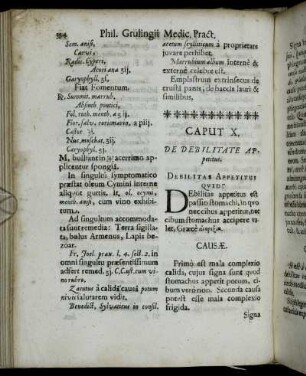 594 Phil. Grulingii Medic. Pract.
Sem. anisi,
Carui,
Radic. Cyperi,
Acori ana ʒij.
Garyophyll. ʒi.
Fiat Fomentum.
℞. Summit. marrub,
Absinth. pontici,
Fol. ruth. menth. a ʒ ij
Flor. salv, rorismarin. a pij.
Costor.
Nuc. muschat. ʒij.
Caryophyll. ʒi.
M. bulliant in acerrimo ap-
plicentur spongiâ.
In singultu symptomatico
præstat oleum Cymini interne
aliquot guttis. It. ol.
menth. anisi, cum vino exhibi-
tum.
Ad singultum accommoda-
ta sunt remedia: Terra sigilla-
ta, bolus Armenus, Lapis be-
zoar.
Fr. Joel. præx. l. 4. sect. 2. in
omni singultu præsentissimum
adfert remed. ʒj. Cast. cum vi-
no
Zacutus à calidâ causâ potum
nivis valuram vidit.
Benedict. Sylvaticus in consil.
acetum scylliticum à proprietate
juvare perhibet.
Marrubium album internè &
externè celebre est.
Emplastrum extrinsecus de
crustâ panis, de baccis lauri &
similibus.
CAPUT X.
DE DEBILITATE AP-
petitus.
DEBILITAS APPETITUS
QUID?
DEbilitas appetitus est
passio stomachi, in quo
nec cibus appetitur, nec
cibum stomachus accipere
valet. Græcè
CAUSÆ.
Primò est mala complexio
calida, cujus signa sunt quod
stomachus appetit potum, ci-
bum verò non. Secunda causa
potest esse mala complexio
frigida.
Signa